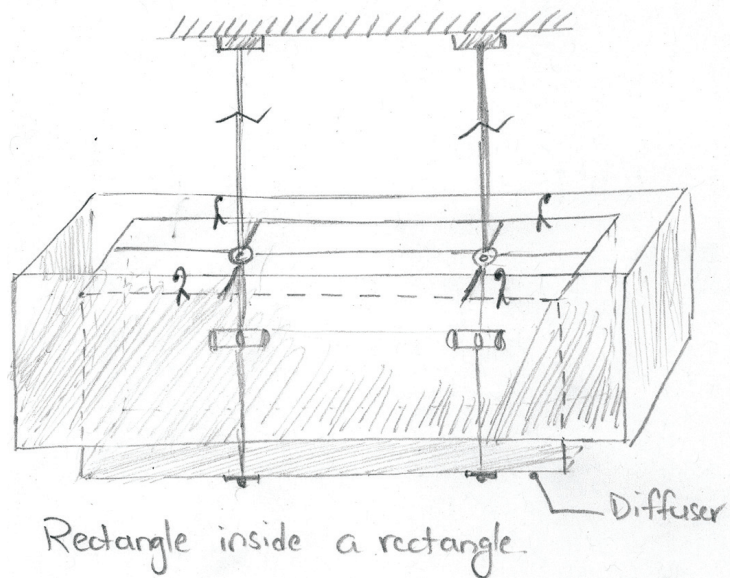 Diffuser
Rectangle inside a rectangle.